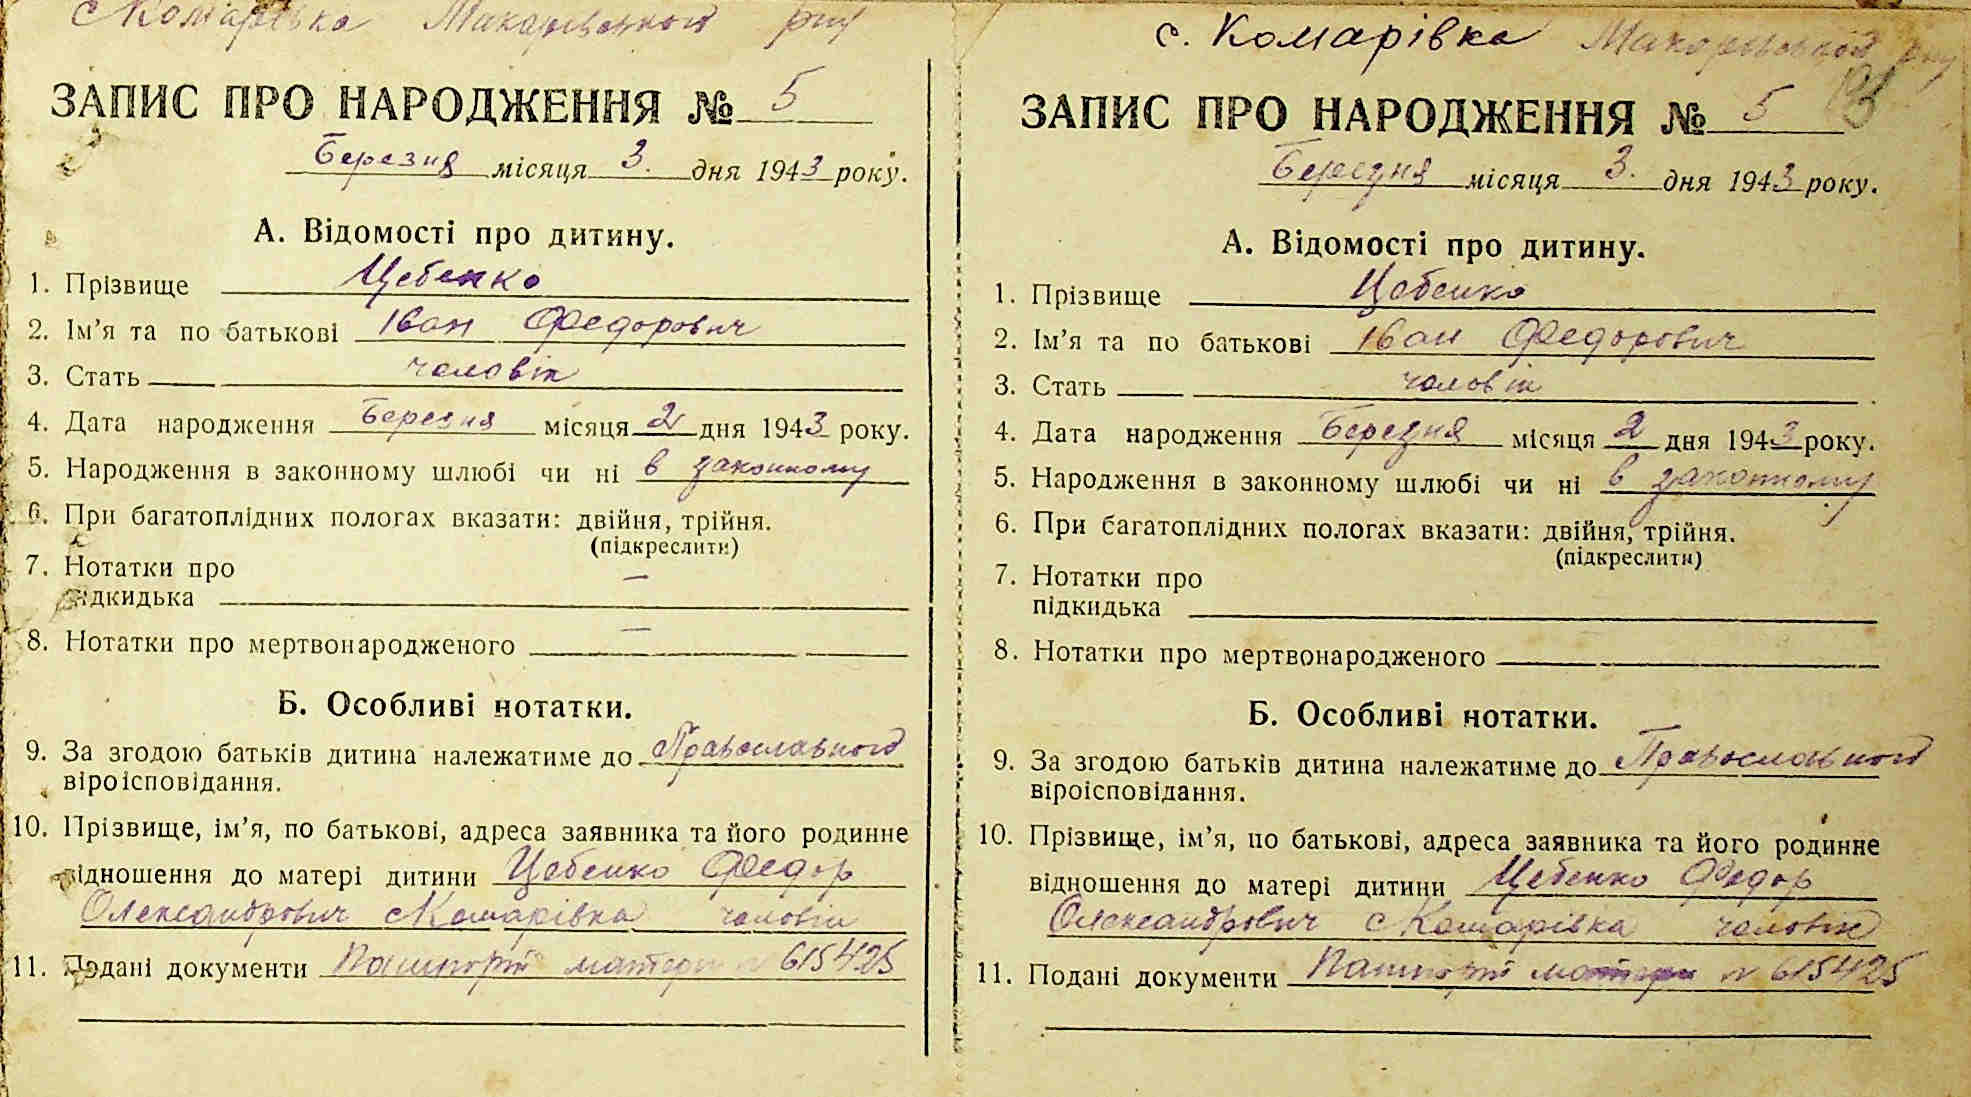 с Комарівка Макарівської р-ну
ЗАПИС ПРО НАРОДЖЕННЯ № 5
Березня місяця 3. дня 1943 року.
А. Відомості про дитину.
1. Прізвище Цебенко
2. Ім’я та по батькові Іван Федорович
3. Стать чоловік
4. Дата народження Березня місяця 2 дня 1943 року.
5. Народження в законному шлюбі чи ні в законному
6. При багатоплідних пологах вказати: двійня, трійня.
(підкреслити)
7. Нотатки про
підкидька —
8. Нотатки про мертвонародженого —
Б. Особливі нотатки.
9. За згодою батьків дитина належатиме до Православного
віроісповідання.
10. Прізвище, ім’я, по батькові, адреса заявника та його родинне
відношення до матері дитини Цебенко Федор
Олександрович с Комарівка чоловік
11. Подані документи Пашпорт матери № 615425
с. Комарівка Макарівської р-ну
ЗАПИС ПРО НАРОДЖЕННЯ № 5
Березня місяця 3. дня 1943 року.
А. Відомості про дитину.
1. Прізвище Цебенко
2. Ім’я та по батькові Іван Федорович
3. Стать чоловік
4. Дата народження Березня місяця 2 дня 1943 року.
5. Народження в законному шлюбі чи ні в законному
6. При багатоплідних пологах вказати: двійня, трійня.
(підкреслити)
7. Нотатки про
підкидька
8. Нотатки про мертвонародженого
Б. Особливі нотатки.
9. За згодою батьків дитина належатиме до Православного
віроісповідання.
10. Прізвище, ім’я, по батькові, адреса заявника та його родинне
відношення до матері дитини Цебенко Федор
Олександрович с Комарівка чоловік
11. Подані документи Пашпорт матери № 615425